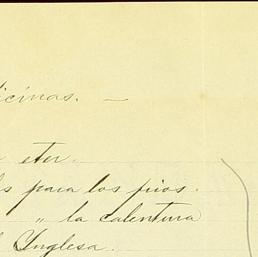 icinas. —
eter.
s para los frios.
" la calentura
Ynglesa.